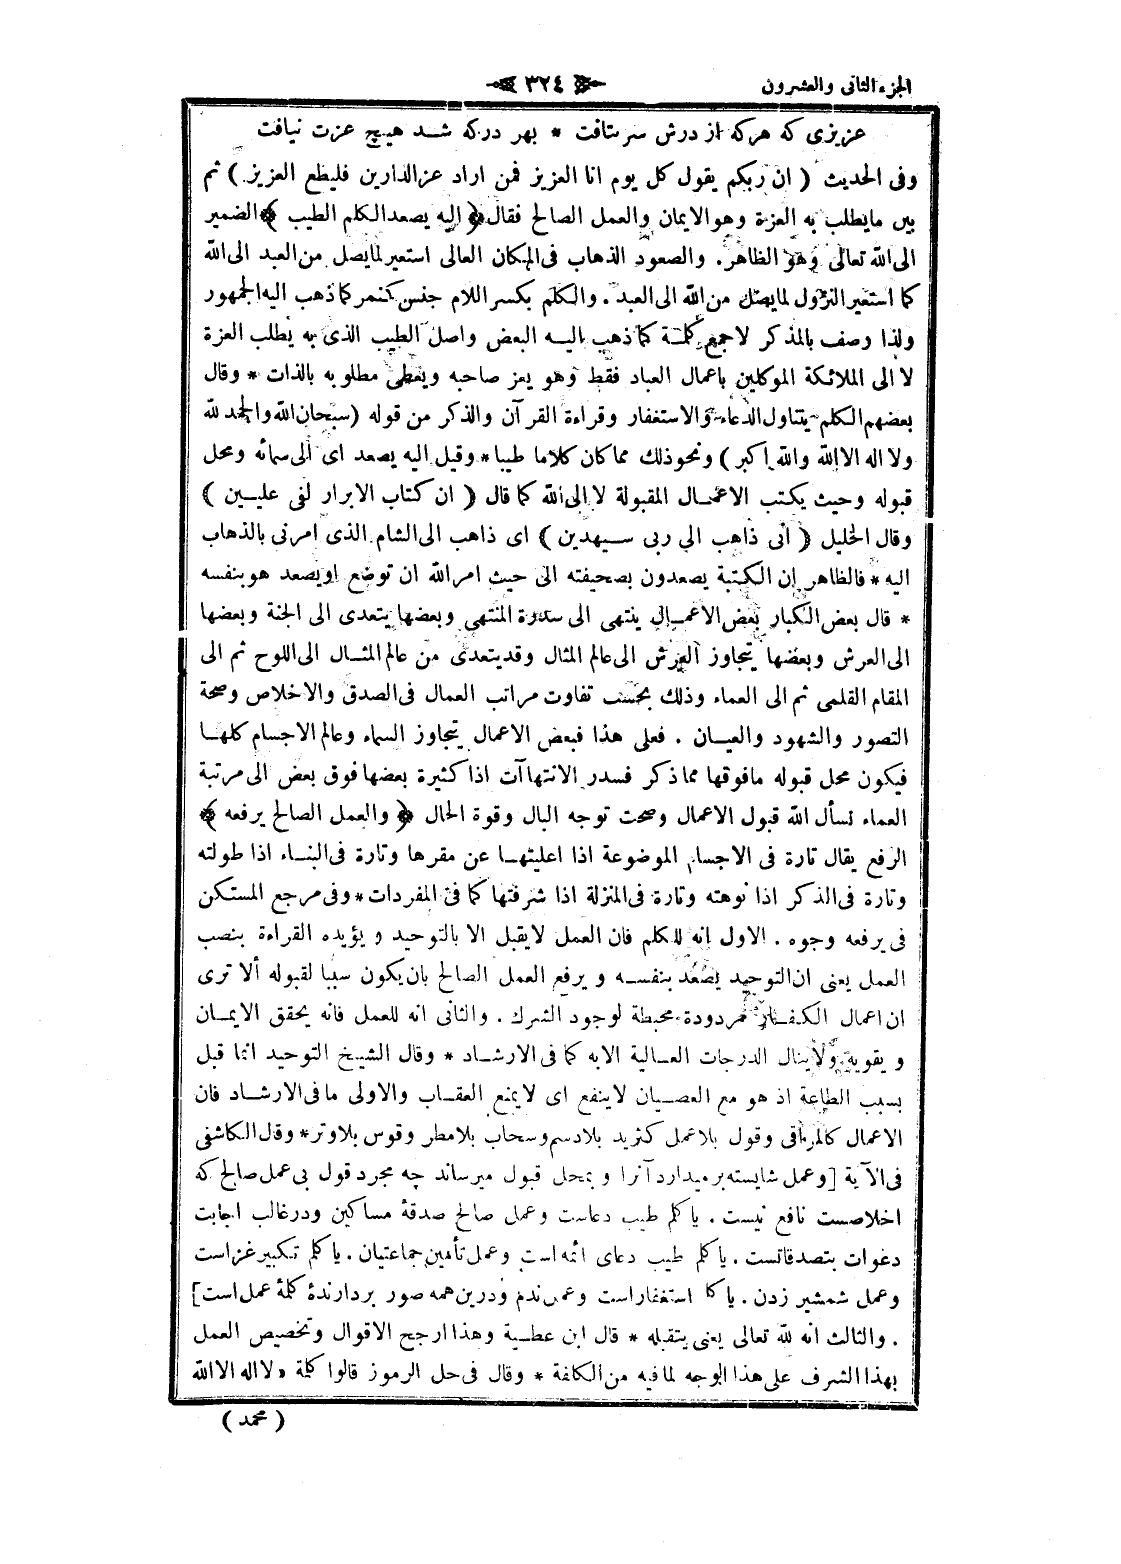 الجزء الثانى والعشرون
٣٢٤
عزيزى كه هركه از درش سر بتافت * بهر دركه شد هيچ عزت نيافت
وفى الحديث ( ان ربكم يقول كل يوم انا العزيز فمن اراد عز الدارين فليطع العزيز ) ثم
بين مايطلب به العزة وهو الايمان والعمل الصالح فقال ﴿ اليه يصعد الكلم الطيب ﴾ الضمير
الى الله تعالى وهو الظاهر . والصعود الذهاب فى المكان العالى استعير لما يصل من العبد الى الله
كما استعير النزول لما يصل من الله الى العبد . والكلم بكسر اللام جنس كنمر كما ذهب اليه الجمهور
ولذا وصف بالمذكر لا جمع كلمة كما ذهب اليه البعض واصل الطيب الذى به يطلب العزة
لا الى الملائكة الموكلين باعمال العباد فقط وهو يعز صاحبه ويعطى مطلوبه بالذات * وقال
بعضهم الكلم يتناول الدعاء والاستغفار وقراءة القرآن والذكر من قوله ( سبحان الله والحمد لله
ولا اله الا الله والله اكبر ) ونحو ذلك مما كان كلاما طيبا * وقيل اليه يصعد اى الى سمائه ومحل
قبوله وحيث يكتب الاعمال المقبولة لا الى الله كما قال ( ان كتاب الابرار لفى عليين )
وقال الخليل ( انى ذاهب الى ربى سيهدين ) اى ذاهب الى الشام الذى امرنى بالذهاب
اليه * فالظاهر ان الكتبة يصعدون بصحيفته الى حيث امر الله ان توضع او يصعد هو بنفسه
* قال بعض الكبار بعض الاعمال ينتهى الى سدرة المنتهى وبعضها يتعدى الى الجنة وبعضها
الى العرش وبعضها يتجاوز العرش الى عالم المثال وقد يتعدى من عالم المثال الى اللوح ثم الى
المقام القلمى ثم الى العماء وذلك بحسب تفاوت مراتب العمال فى الصدق والاخلاص وصحة
التصور والشهود والعيان . فعلى هذا فبعض الاعمال يتجاوز السماء وعالم الاجسام كلها
فيكون محل قبوله مافوقها مما ذكر فسدر الانتهاآت اذا كثيرة بعضها فوق بعض الى مرتبة
العماء نسأل الله قبول الاعمال وصحت توجه البال وقوة الحال ﴿ والعمل الصالح يرفعه ﴾
الرفع يقال تارة فى الاجسام الموضوعة اذا اعليتها عن مقرها وتارة فى البناء اذا طولته
وتارة فى الذكر اذا نوهته وتارة فى المنزلة اذا شرفتها كما فى المفردات * وفى مرجع المستكن
فى يرفعه وجوه . الاول انه للكلم فان العمل لايقبل الا بالتوحيد ويؤيده القراءة بنصب
العمل يعنى ان التوحيد يصعد بنفسه ويرفع العمل الصالح بان يكون سببا لقبوله ألا ترى
ان اعمال الكفار مردودة محبطة لوجود الشرك . والثانى انه للعمل فانه يحقق الايمان
ويقويه ولاينال الدرجات العالية الابه كما فى الارشاد * وقال الشيخ التوحيد انما قبل
بسبب الطاعة اذ هو مع العصيان لاينفع اى لايمنع العقاب والاولى ما فى الارشاد فان
الاعمال كالمراقى وقول بلاعمل كثريد بلادسم وسحاب بلامطر وقوس بلاوتر * وقال الكاشفى
فى الآية [ وعمل شايسته برميدارد آنرا وبمحل قبول ميرساند چه مجرد قول بى عمل صالح كه
اخلاصست نافع نيست . يا كلم طيب دعاست وعمل صالح صدقۀ مساكين ودرغالب اجابت
دعوات بتصدقاتست . يا كلم طيب دعاى ائمه است وعمل تأمين جماعتيان . يا كلم تكبير غزاست
وعمل شمشير زدن . يا كلم استغفار است وعمل ندم ودرين همه صور بردارندۀ كلمۀ عمل است ]
. والثالث انه لله تعالى يعنى يتقبله * قال ابن عطية وهذا ارجح الاقوال وتخصيص العمل
بهذا الشرف على هذا الوجه لما فيه من الكلفة * وقال فى حل الرموز قالوا كلمة « لا اله الا الله
( محمد )